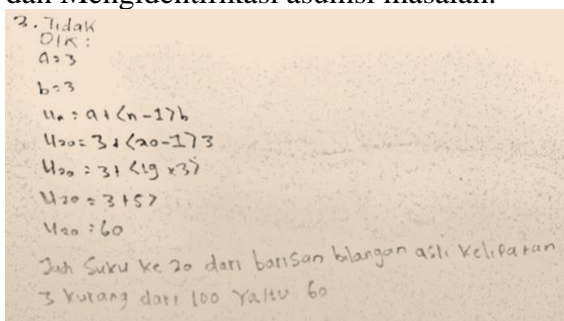 dan Mengidentifikasi asumsi masalah.
3. Tidak
DIK :
a=3
b=3
Un = a+(n-1)b
U20= 3+(20-1)3
U20 = 3+(19x3)
U20 = 3+57
U20 = 60
Jadi Suku ke 20 dari barisan bilangan asli kelipatan
3 kurang dari 100 Yaitu 60